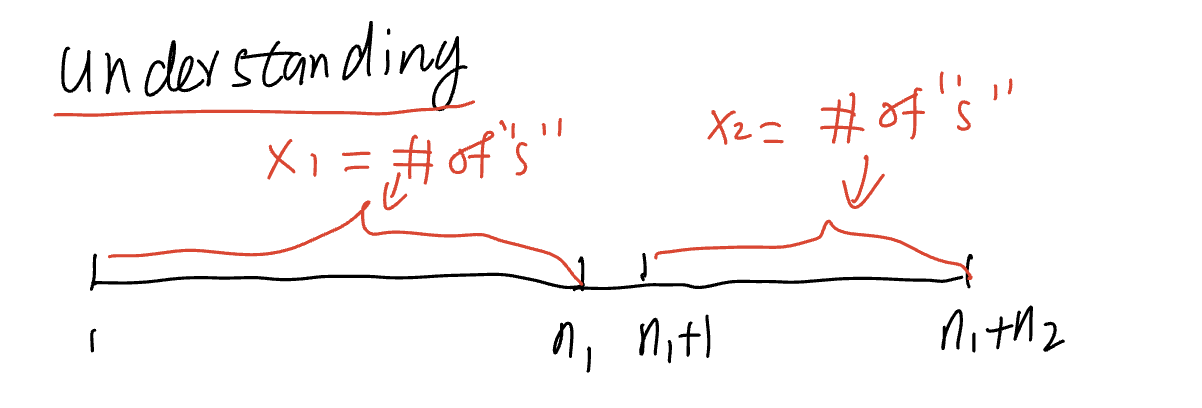 understanding
x1 = # of "s"
x2 = # of "s"
1 n1 n1+1 n1+n2